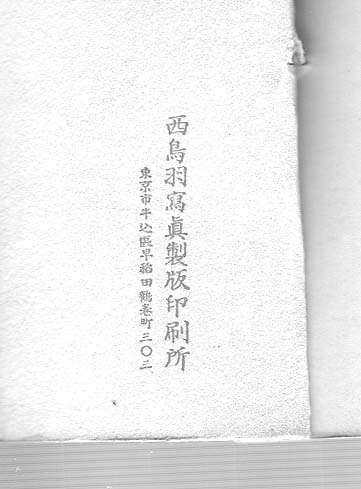 西鳥羽寫眞製版印刷所
東京市牛込區早稲田鶴巻町三〇二